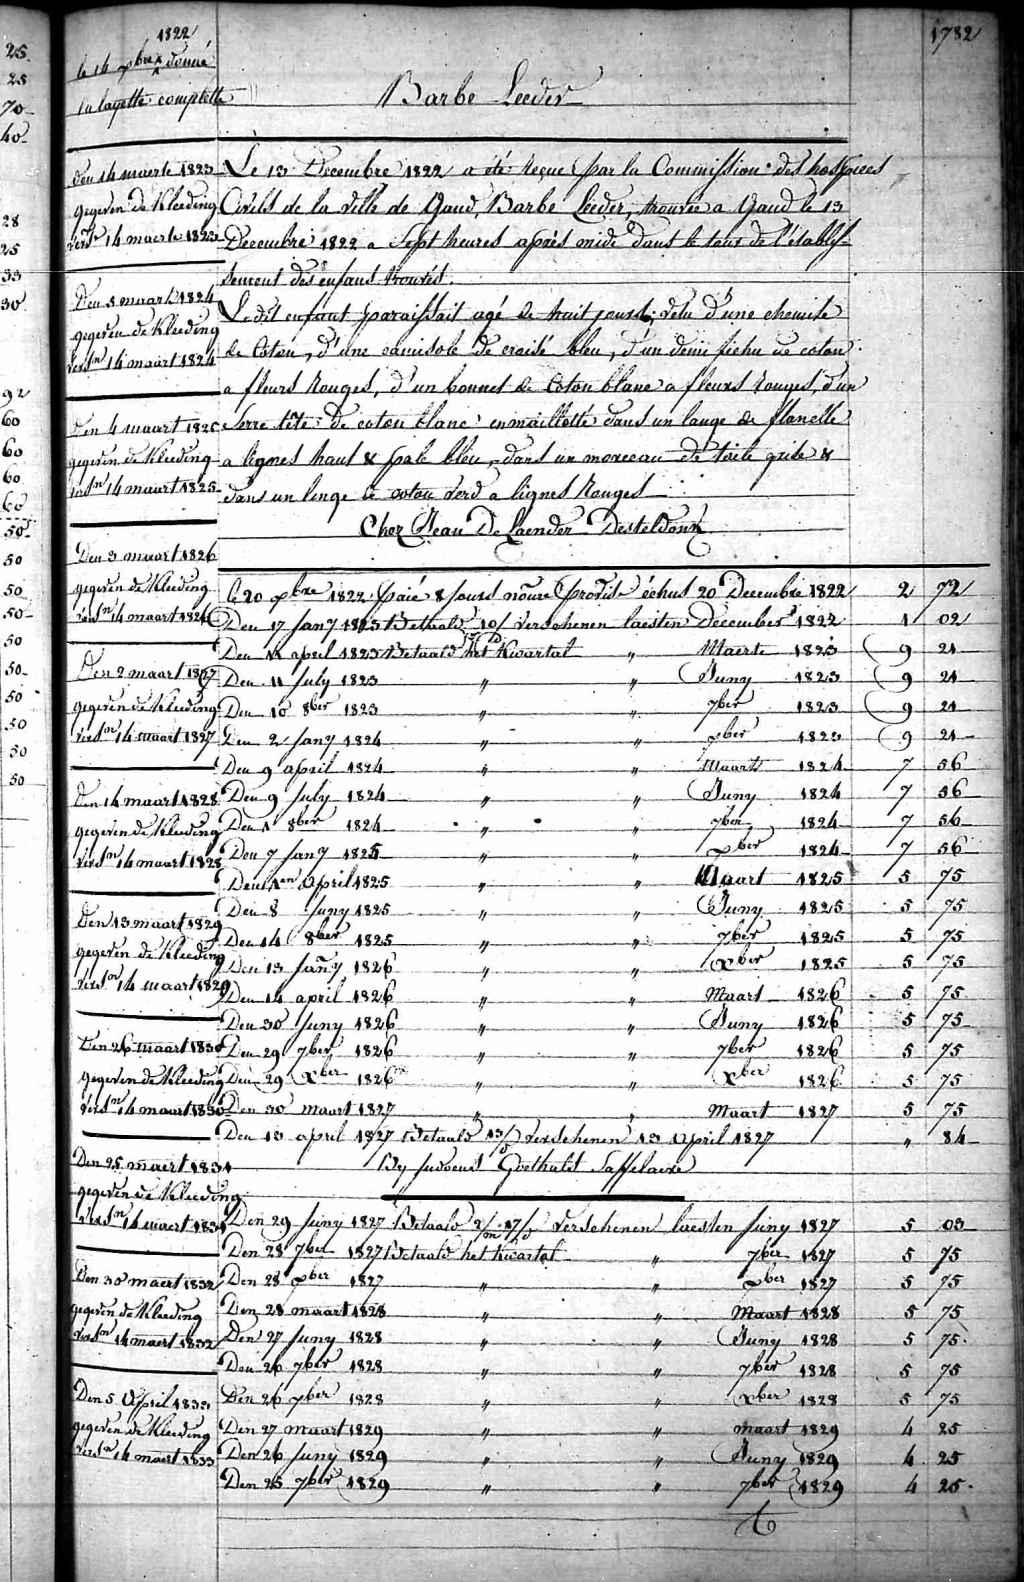 1782
1822
le 14 xbre donné
la layette complette
Barbe Leeder
Den 14 maerte 1823
gegeven de Kleeding
versn 14 maerte 1823
Den 5 maart 1824
gegeven de Kleeding
versn 14 maart 1824
Den 4 maart 1825
gegeven de Kleeding
versn 14 maart 1825
Den 3 maart 1826
gegeven de Kleeding
versn 14 maart 1826
Den 2 maart 1827
gegeven de Kleeding
versn 14 maart 1827
Den 14 maart 1828
gegeven de Kleeding
versn 14 maart 1828
Den 13 maart 1829
gegeven de Kleeding
versn 14 maart 1829
Den 26 maart 1830
gegeven de Kleeding
versn 14 maart 1830
Den 25 maert 1831
gegeven de Kleeding
versn 14 maert 1831
Den 30 maert 1832
gegeven de Kleeding
versn 14 maert 1832
Den 5 April 1833
gegeven de Kleeding
versn 14 maert 1833
Le 13 Decembre 1822 a été reçue par la Commission des hospices
Civils de la ville de Gand, Barbe Leeder, trouvée a Gand le 13
Decembre 1822 a Sept heures après midi dans le tour de l'établis-
sement des enfans trouvés.
Ledit enfant paraissait agé de huit jours, vêtu d'une chemise
de Coton, d'une camisole de croisé bleu, d'un demi fichu de coton
a fleurs rouges, d'un bonnet de Coton blanc a fleurs rouges, d'un
Serre tête de coton blanc enmaillotté dans un lange de flanelle
a lignes haut & pale bleu, dans un morceau de toile grise &
dans un linge de coton verd a lignes rouges
Chez Jean De Laender Desteldonk
le 20 xbre 1822 payé 8 jours nourre Provis échus 20 Decembre 1822 2 72
Den 17 Jany 1823 Betaald 10/ verschenen laesten December 1822 1 02
Den 11 april 1823 Betaald het Kwartal " Maerte 1823 9 21
Den 11 July 1823 " " Juny 1823 9 21
Den 10 8ber 1823 " 7ber 1823 9 21
Den 2 Jany 1824 " " xber 1823 9 21
Den 9 april 1824 " " Maart 1824 7 56
Den 9 July 1824 " " Juny 1824 7 56
Den 1 8ber 1824 " " 7ber 1824 7 56
Den 7 Jany 1825 " " xber 1824 7 56
Den 1en April 1825 " " Maart 1825 5 75
Den 8 Juny 1825 " " Juny 1825 5 75
Den 14 8ber 1825 " " 7ber 1825 5 75
Den 13 Jany 1826 " " xber 1825 5 75
Den 14 april 1826 " " Maart 1826 5 75
Den 30 Juny 1826 " " Juny 1826 5 75
Den 29 7ber 1826 " " 7ber 1826 5 75
Den 29 xber 1826 " " xber 1826 5 75
Den 30 maart 1827 " " Maart 1827 5 75
Den 13 april 1827 Betaald 13/ verschenen 13 April 1827 " 84
By Judocus Goethals Saffelaere
Den 29 Juny 1827 Betaald 2/m 17/d verschenen laesten Juny 1827 5 03
Den 28 7ber 1827 Betaald het Kwartal " 7ber 1827 5 75
Den 28 xber 1827 " xber 1827 5 75
Den 28 maart 1828 " " Maart 1828 5 75
Den 27 Juny 1828 " " Juny 1828 5 75
Den 26 7ber 1828 " " 7ber 1828 5 75
Den 26 xber 1828 " " xber 1828 5 75
Den 27 maart 1829 " " maart 1829 4 25
Den 26 Juny 1829 " " Juny 1829 4 25
Den 25 7ber 1829 " " 7ber 1829 4 25
25
25
70
40
28
25
33
30
92
60
60
60
60
50
50
50
50
50
50
50
50
50
50